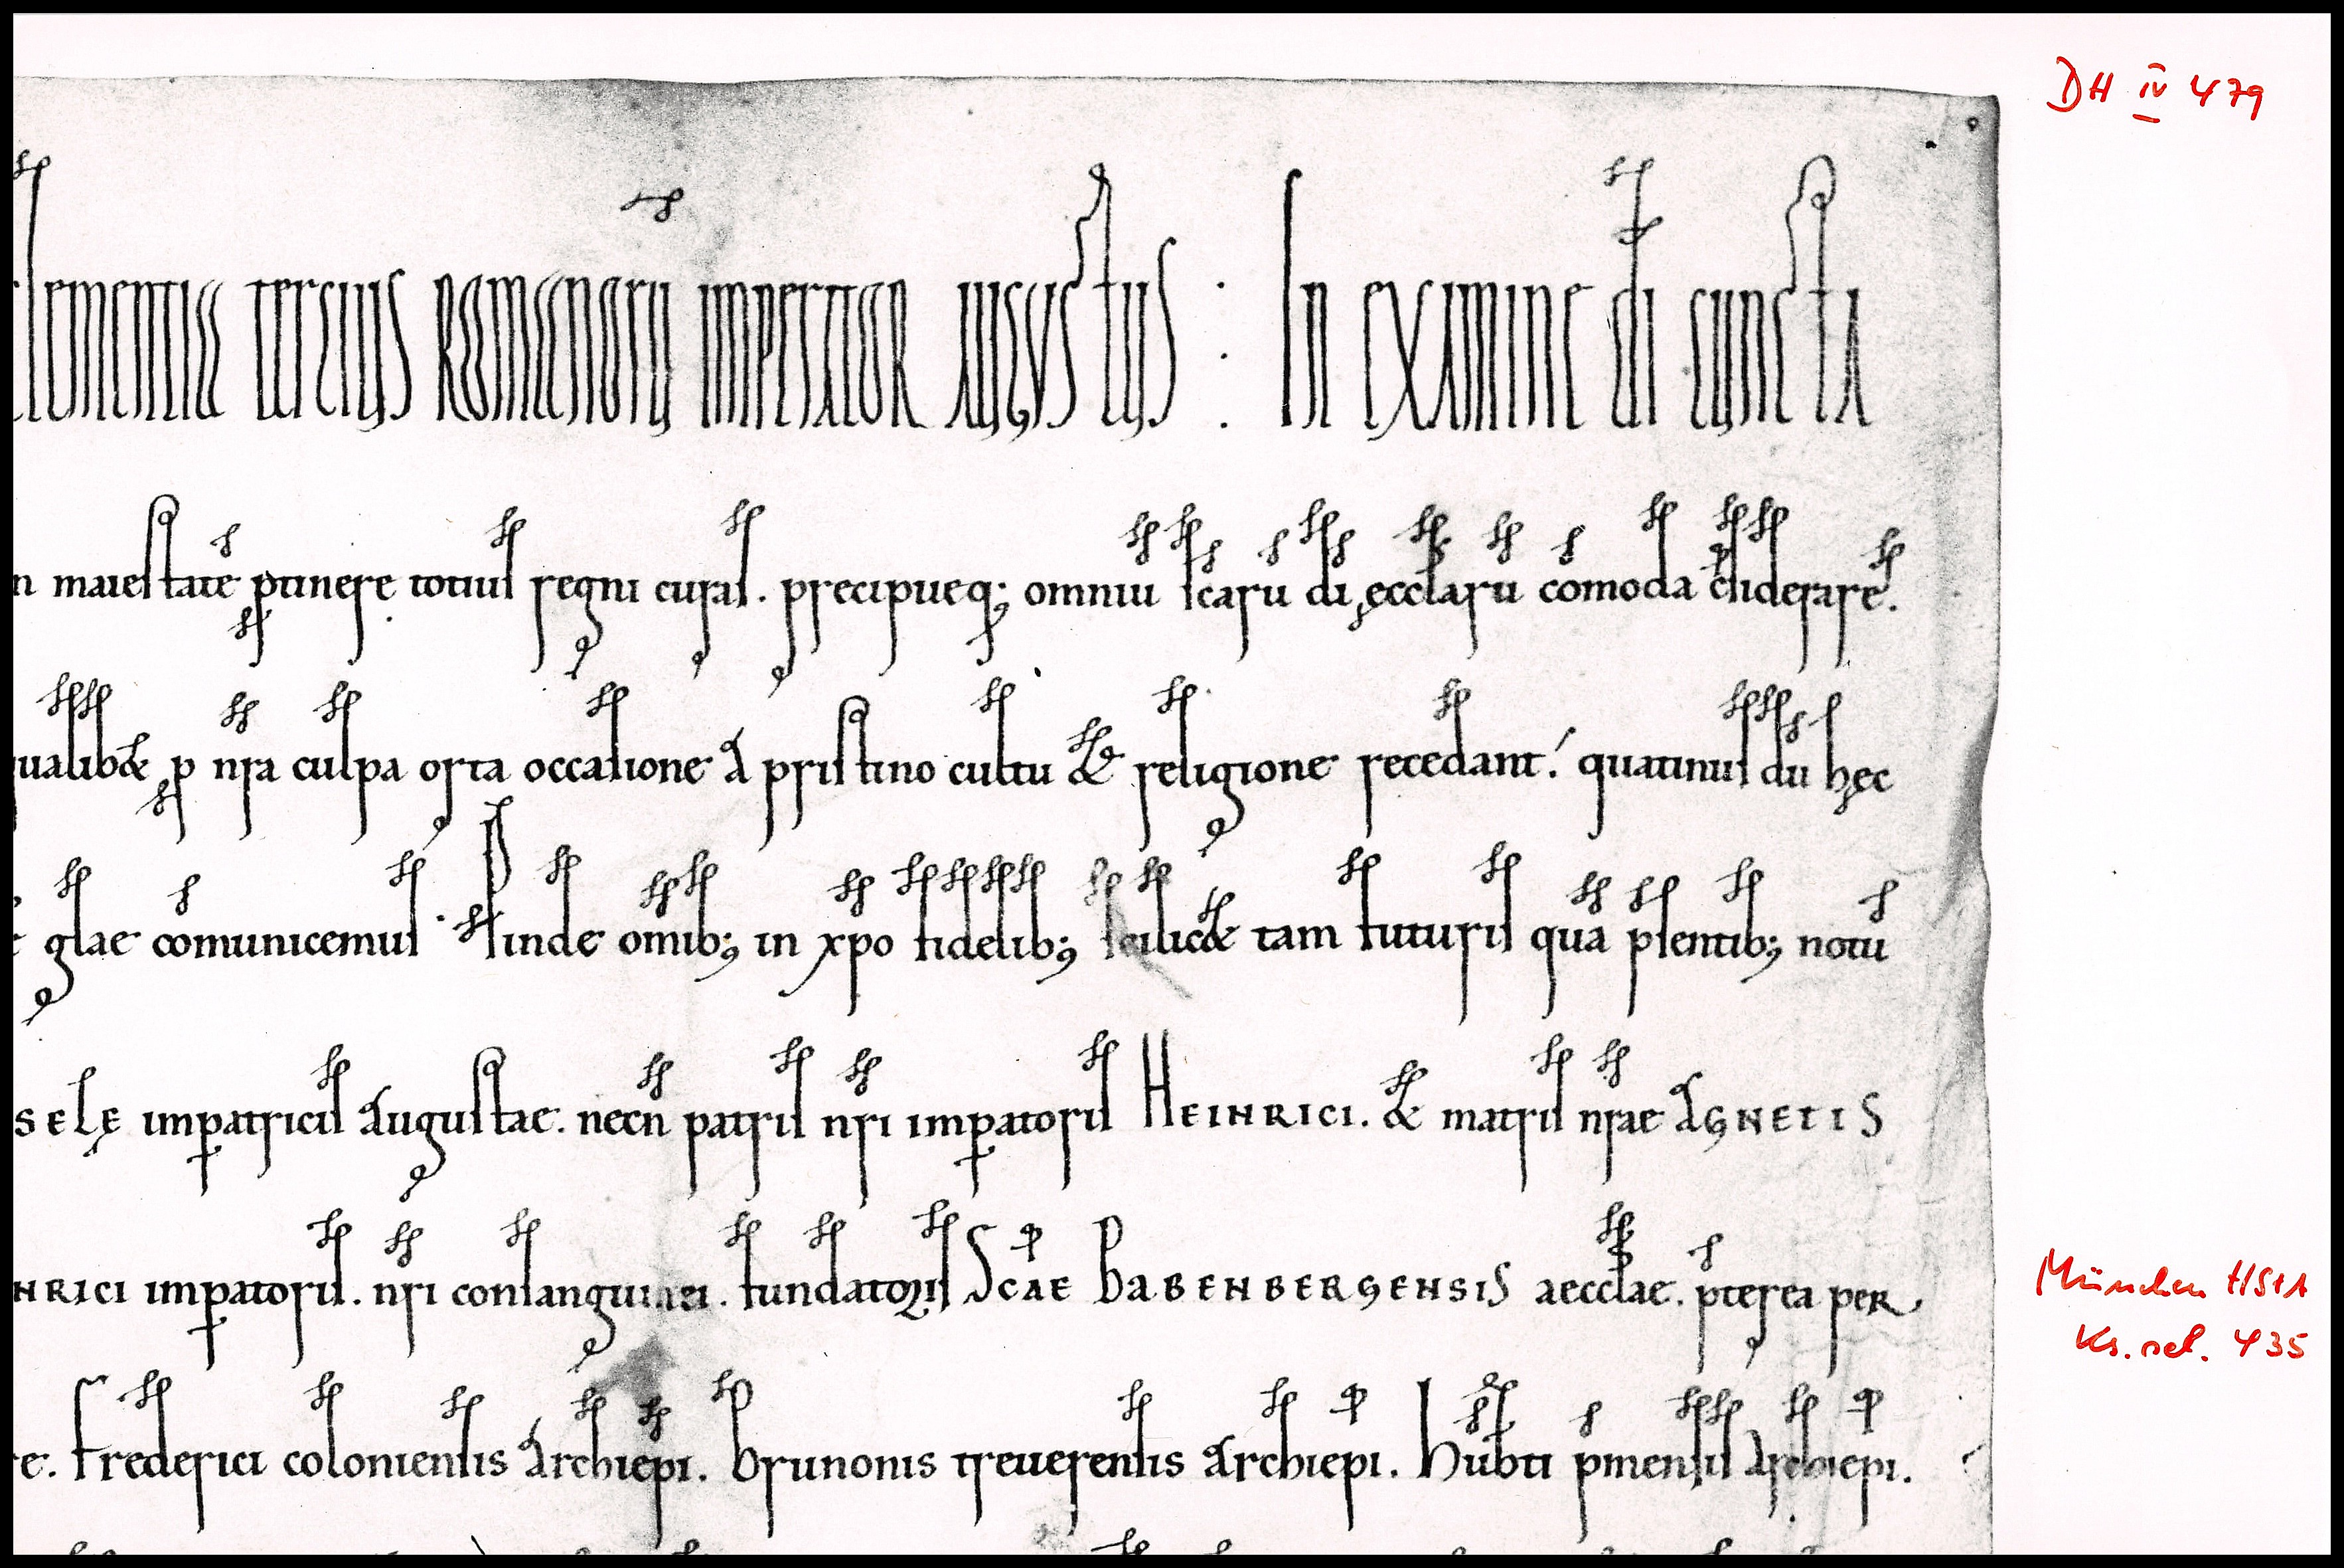 DH IV 479
clementia tercius Romanorū imperator augustus : In examine dī cuncta
n maiestatē ptinere totius regni curas. precipueq; omniū scarū dī ęcclarū cōmoda c̄siderare.
qualib& p nr̄a culpa orta occasione a pristino cultu & religione recedant. quatinus dū hęc
glae cōmunicemus. Hinc inde omīb; in xp̄o fidelib; scilic& tam futuris quā p̄sentib; notū
selę impatricis augustae. necn̄ patris nr̄i impatoris Heinrici. & matris nr̄ae Agnetis
nrici impatoris. nr̄i consanguinei. fundatoris Sc̄ae Babenbergensis aeccl̄ae. p̄terea per
München HStA
Ks. sel. 435
re. Frederici coloniensis archiep̄i. Brunonis treuerensis archiep̄i. Hūb̄ti p̄mensis archiep̄i.